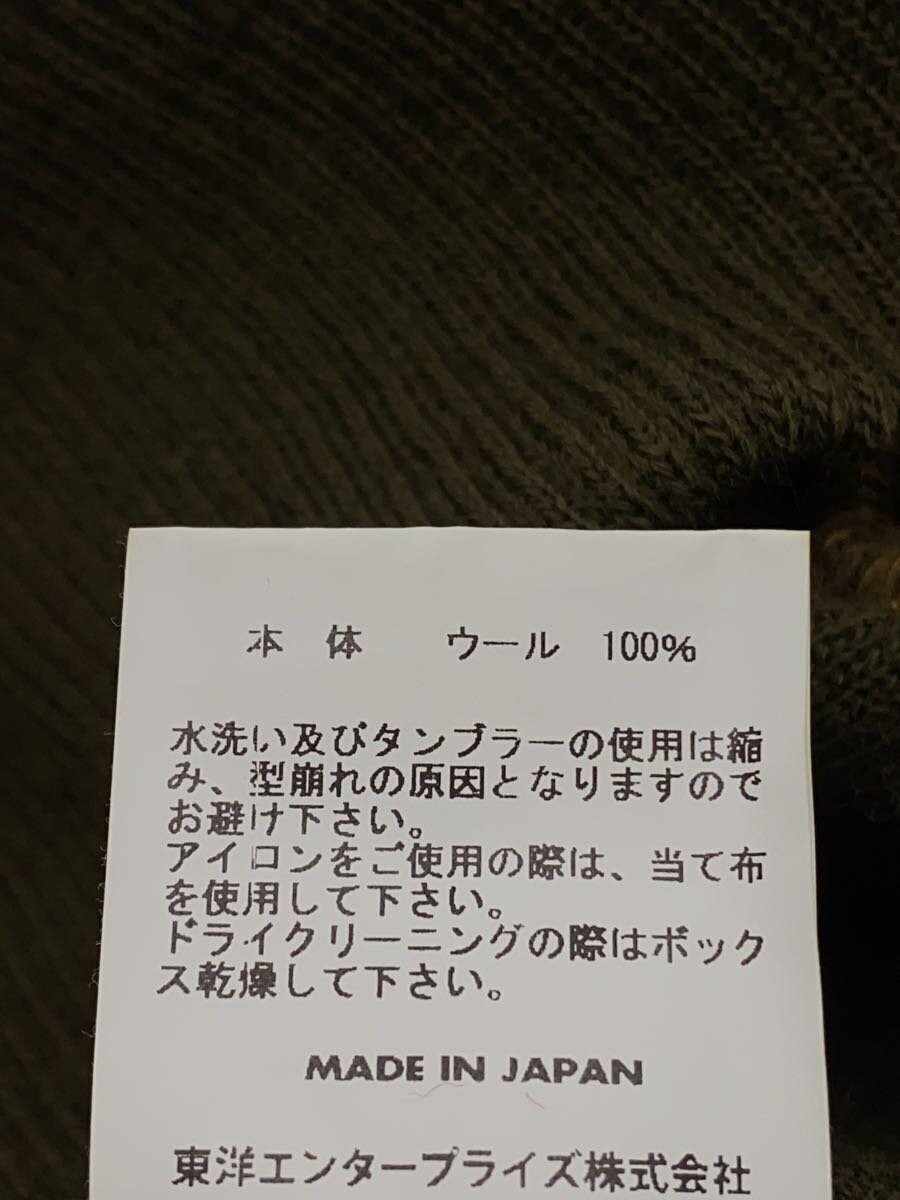 本 体 ウール 100%
水洗い及びタンブラーの使用は縮
み、型崩れの原因となりますので
お避け下さい。
アイロンをご使用の際は、当て布
を使用して下さい。
ドライクリーニングの際はボック
ス乾燥して下さい。
MADE IN JAPAN
東洋エンタープライズ株式会社